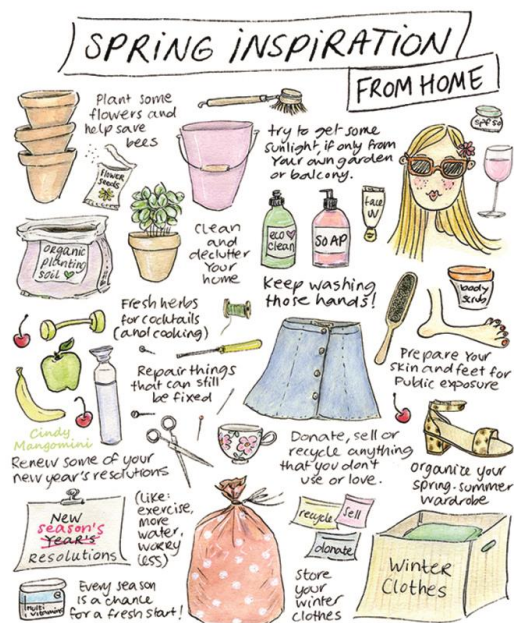 SPRING INSPIRATION
FROM HOME
Plant some
flowers and
help save
bees
FLOWER
SEEDS
try to get some
sunlight, if only from
Your own garden
or balcony.
SPF 50
face
UV
organic
planting
soil
Clean
and
declutter
Your
home
eco
clean
SOAP
Keep washing
those hands!
body
scrub
Fresh herbs
for cocktails
(and cooking)
Repair things
that can still
be fixed
Prepare Your
skin and feet for
Public exposure
Cindy
Mangomini
Renew some of your
new year's resolutions
Donate, sell or
recycle anything
that you don't
use or love.
organize your
spring-summer
wardrobe
New
season's
YEAR'S
RESOLUTIONS
(like:
exercise,
more
water,
worry
less)
recycle
sell
donate
Winter
Clothes
Store
your
winter
clothes
multi
vitamins
Every season
is a chance
for a fresh start!